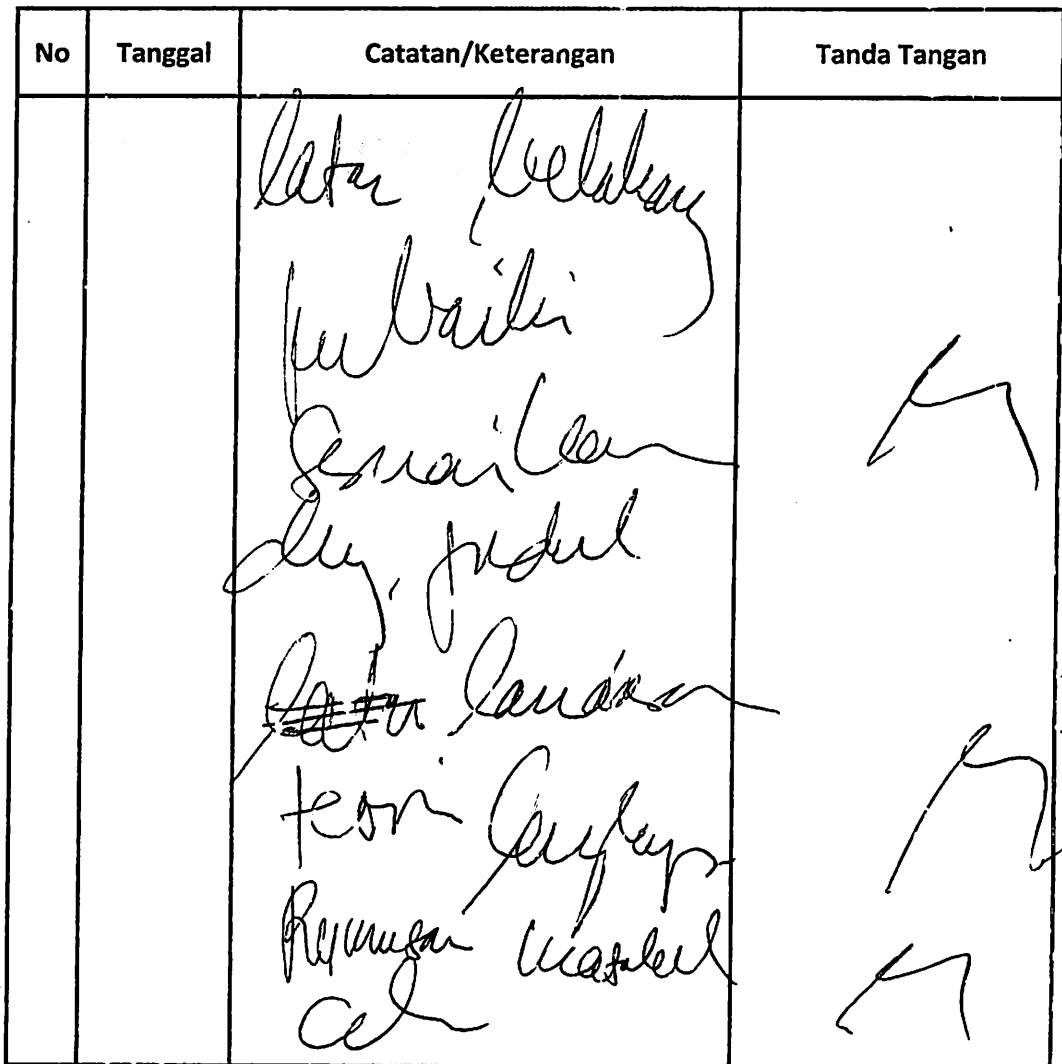 No Tanggal Catatan/Keterangan Tanda Tangan
latar belakang
perbaiki
sesuaikan
dng judul
landasan
teori lengkapi
Rumusan masalah